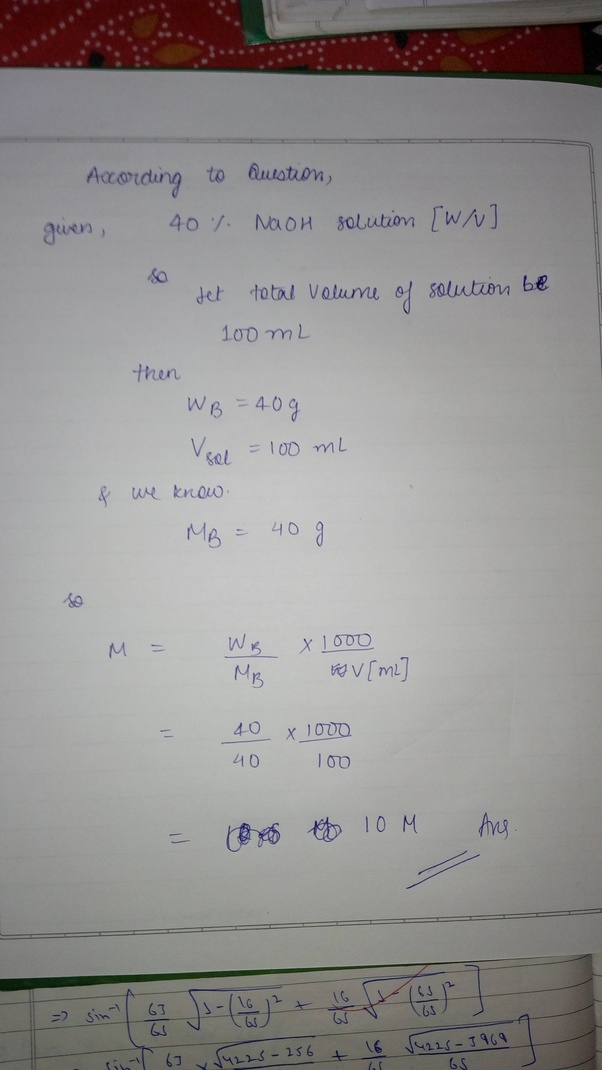 According to Question,
given, 40 % NaOH solution [W/V]
so
let total volume of solution be
100 mL
then
W_B = 40 g
V_sol = 100 mL
& we know.
M_B = 40 g
so
M = W_B / M_B × 1000 / V[mL]
= 40 / 40 × 1000 / 100
= 10 M Ans.
=> sin⁻¹[63/65 √1-(16/65)² + 16/65 √1-(63/65)²]
sin⁻¹[63 × √4225-256 + 16/65 √4225-3969/65]